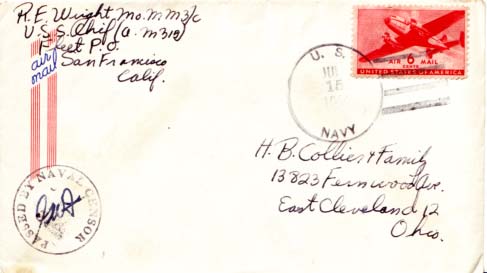 R. E. Wright Mo. M M 3/c
U. S. S. Chief (A. M 315)
Fleet P. O.
San Francisco
Calif.
air
mail
U. S.
JUL
15
NAVY
AIR 6 MAIL
CENTS
UNITED STATES OF AMERICA
H. B. Collier & Family
13823 Fernwood Ave.
East Cleveland 12
Ohio.
PASSED BY NAVAL CENSOR